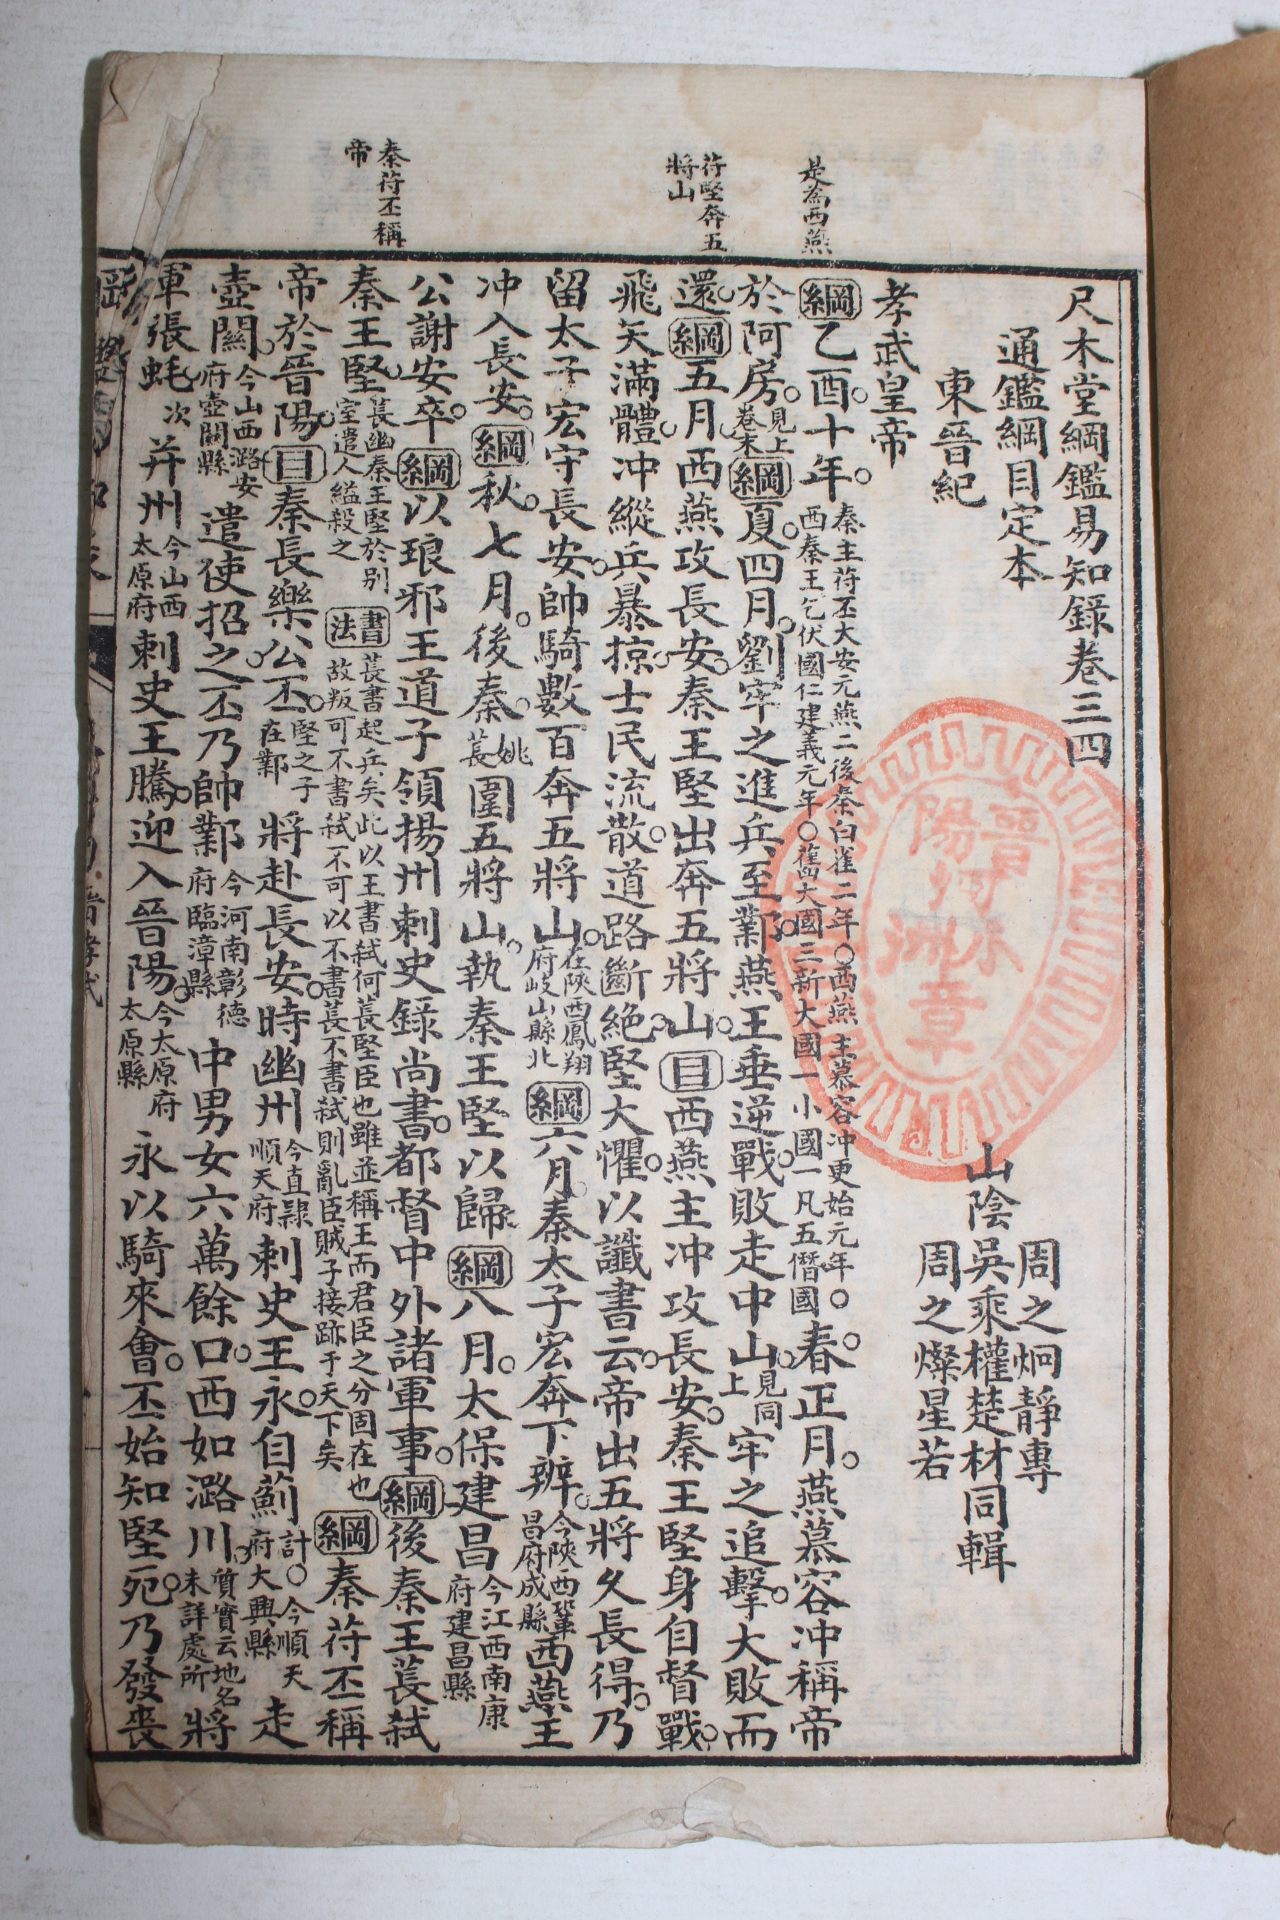 是為西燕
苻堅奔五
將山
秦苻丕稱
帝
尺木堂綱鑑易知錄卷三四
通鑑綱目定本
周之炯靜專
山陰吳乘權楚材同輯
周之燦星若
東晉紀
孝武皇帝
綱乙酉十年。秦主苻丕大安元燕二後秦白雀二年○西燕主慕容冲更始元年○西秦王乞伏國仁建義元年○舊大國三新大國一小國一凡五僭國春正月。燕慕容冲稱帝
於阿房。見上卷末綱夏四月。劉牢之進兵至鄴。燕王垂逆戰。敗走中山。見同上牢之追擊。大敗而
還。綱五月。西燕攻長安。秦王堅出奔五將山。目西燕主冲攻長安。秦王堅身自督戰。
飛矢滿體。冲縱兵暴掠。士民流散。道路斷絕。堅大懼。以讖書云。帝出五將久長得。乃
留太子宏守長安。帥騎數百奔五將山。在陝西鳳翔府岐山縣北綱六月。秦太子宏奔下辨。今陝西鞏昌府成縣西燕王
冲入長安。綱秋。七月。後秦。姚萇圍五將山。執秦王堅以歸。綱八月。太保建昌今江西南康府建昌縣
公謝安卒。綱以琅邪王道子領揚州刺史錄尚書。都督中外諸軍事。綱後秦王萇弒
秦王堅。萇幽秦王堅於别室遣人縊殺之書法萇書起兵矣此以王書弒何萇堅臣也雖並稱王而君臣之分固在也故叛可不書弒不可以不書萇不書弒則亂臣賊子接跡于天下矣綱秦苻丕稱
帝於晉陽。目秦長樂公丕。堅之子在鄴將赴長安。時幽州今直隸順天府刺史王永。自薊計○今順天府大興縣走
壺關。今山西潞安府壺關縣遣使招之。丕乃帥鄴今河南彰德府臨漳縣中男女六萬餘口。西如潞川。質實云地名未詳處所將
軍張蚝次并州今山西太原府刺史王騰。迎入晉陽。今太原府太原縣永以騎來會。丕始知堅死。乃發喪
晉陽
章